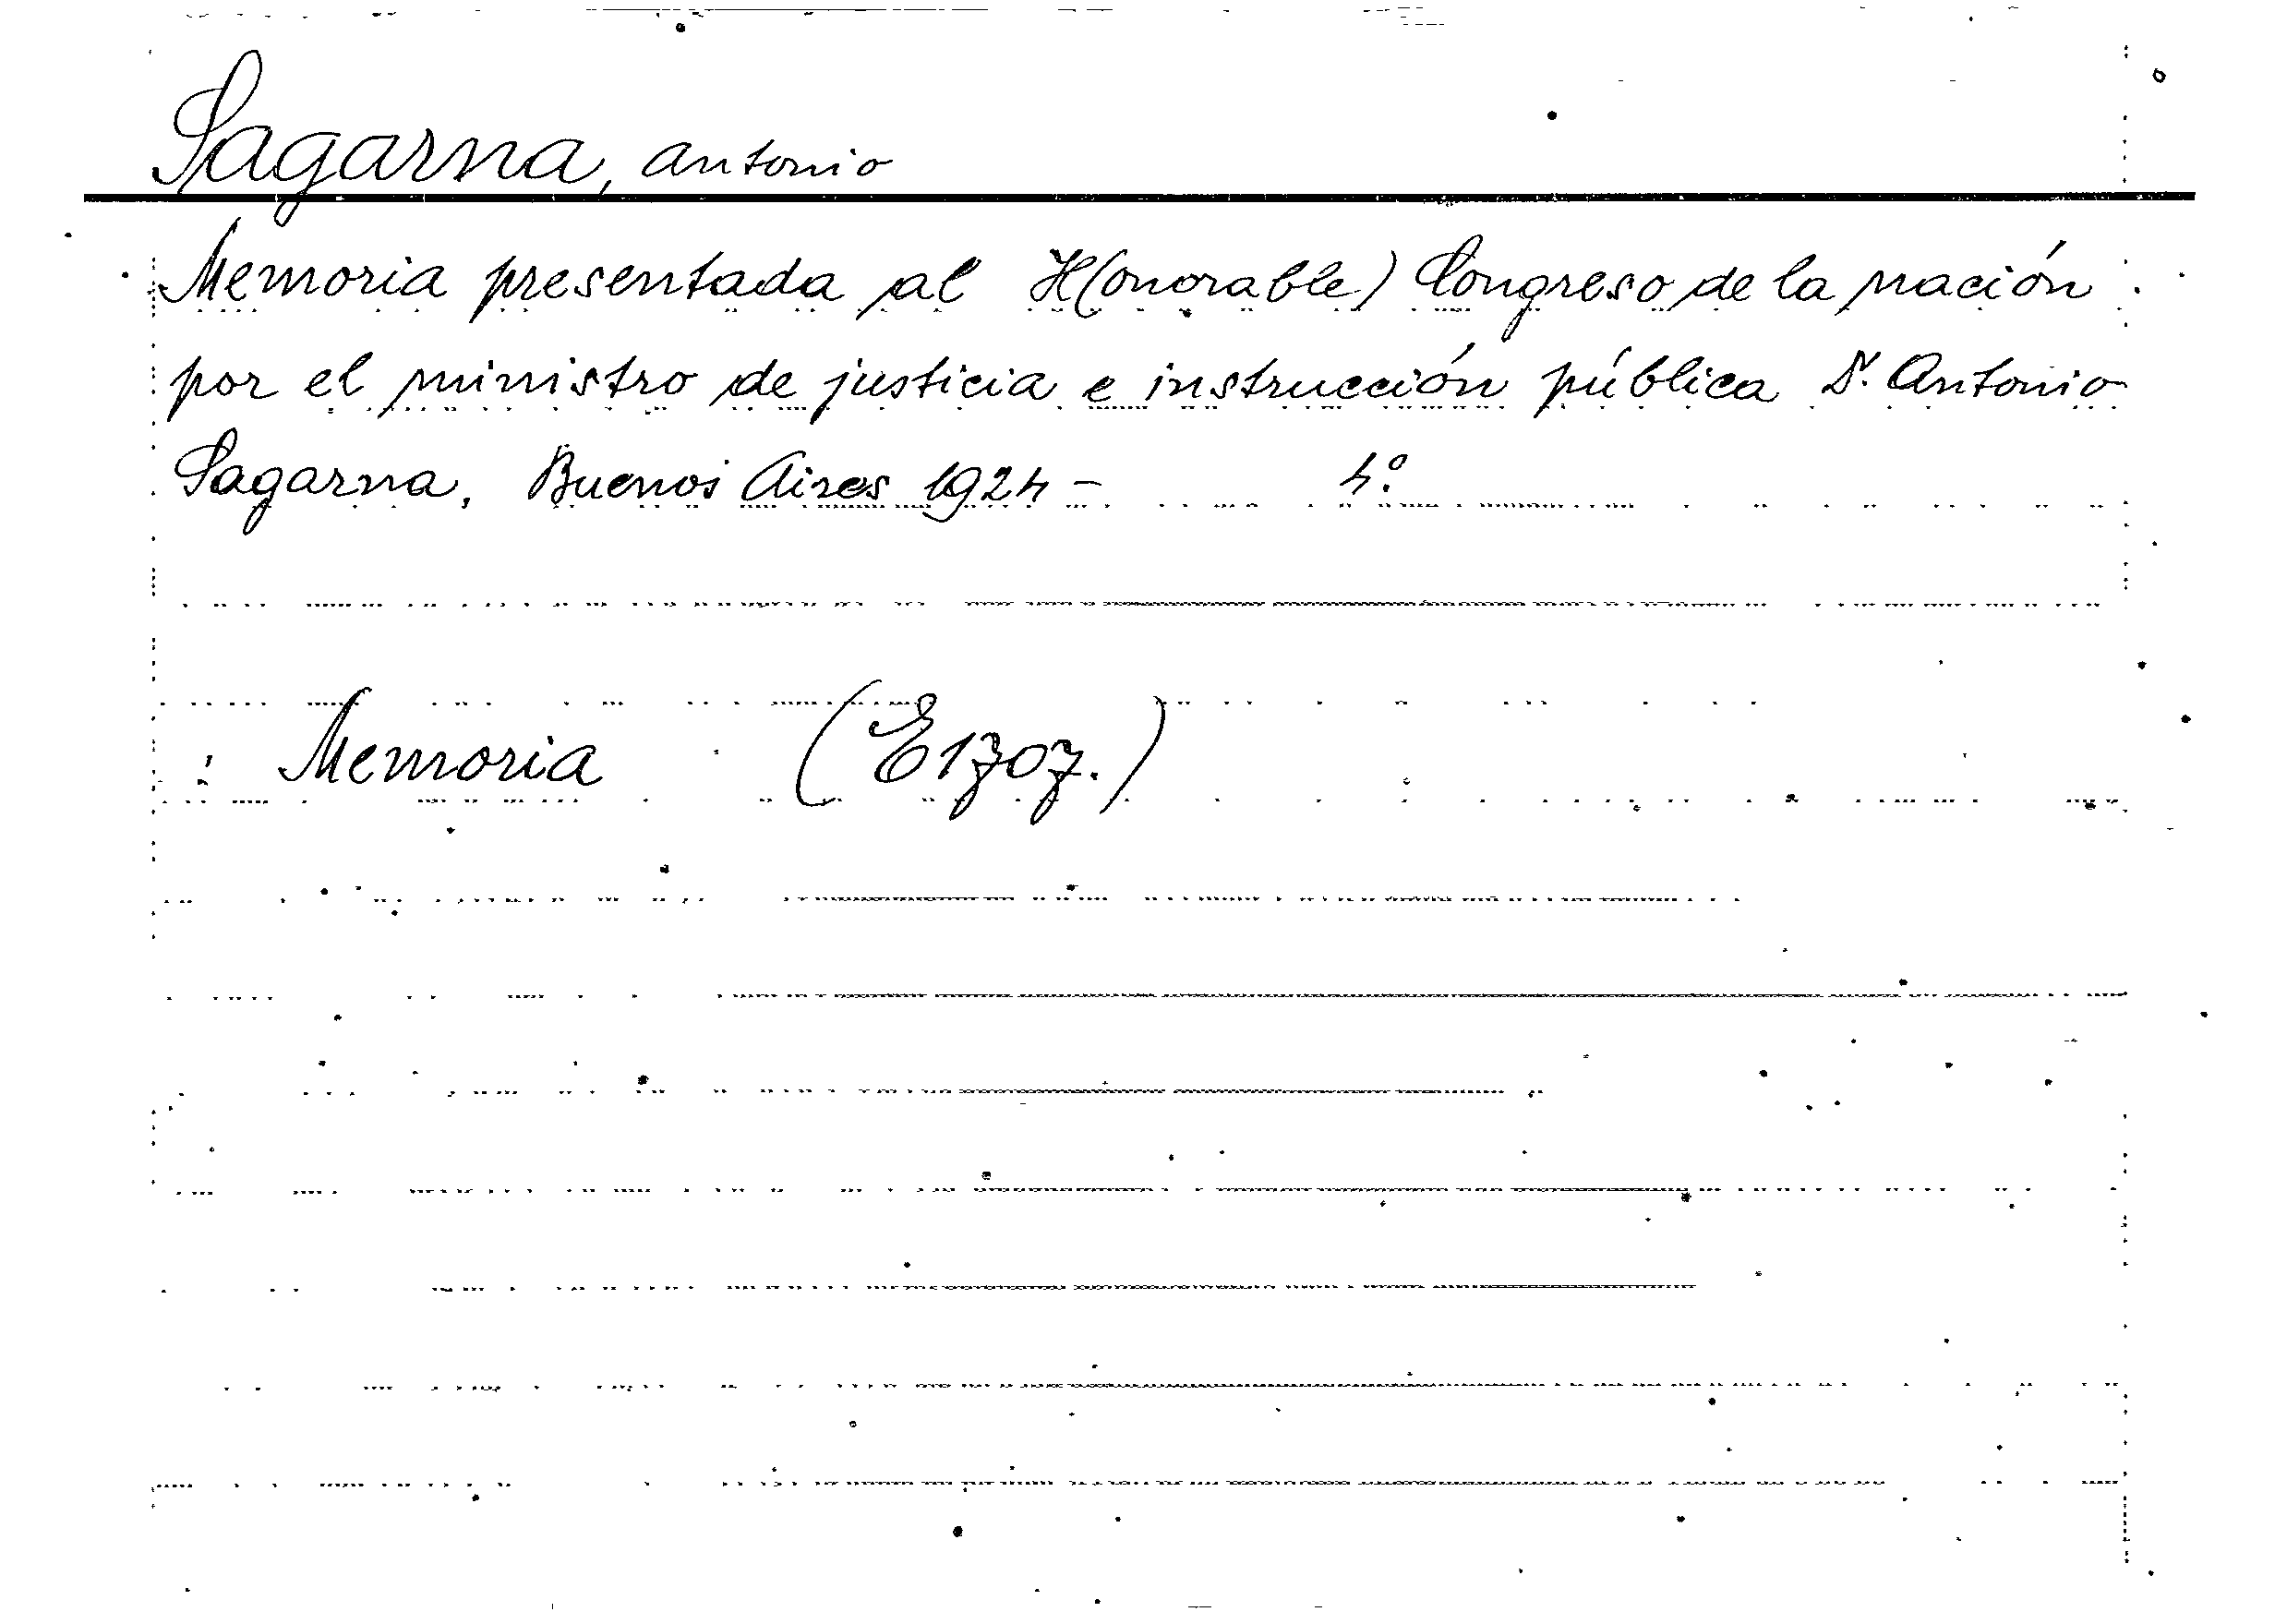 Sagarna, Antonio
Memoria presentada al H(onorable) Congreso de la nación
por el ministro de justicia e instrucción pública Dr. Antonio
Sagarna, Buenos Aires 1924 - 4º
: Memoria (E1707.)